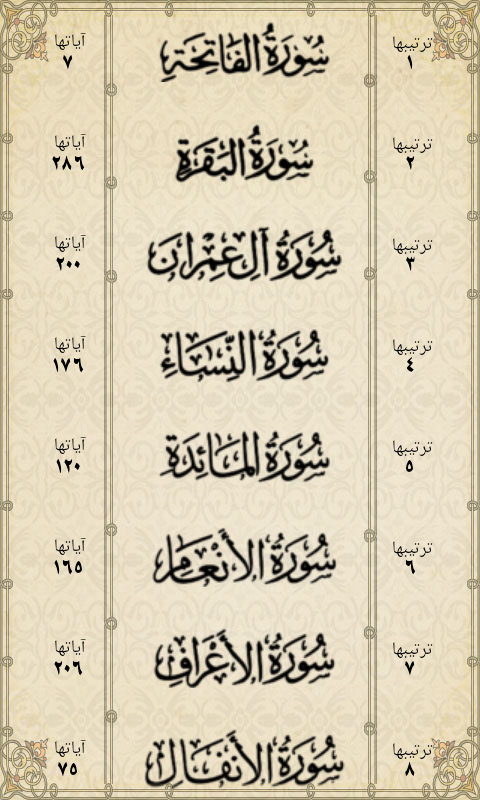 ترتيبها سُورَةُ الفَاتِحَةِ آياتها
١ ٧
ترتيبها سُورَةُ البَقَرَةِ آياتها
٢ ٢٨٦
ترتيبها سُورَةُ آلِ عِمْرَانَ آياتها
٣ ٢٠٠
ترتيبها سُورَةُ النِّسَاءِ آياتها
٤ ١٧٦
ترتيبها سُورَةُ المَائِدَةِ آياتها
٥ ١٢٠
ترتيبها سُورَةُ الأَنْعَامِ آياتها
٦ ١٦٥
ترتيبها سُورَةُ الأَعْرَافِ آياتها
٧ ٢٠٦
ترتيبها سُورَةُ الأَنفَالِ آياتها
٨ ٧٥